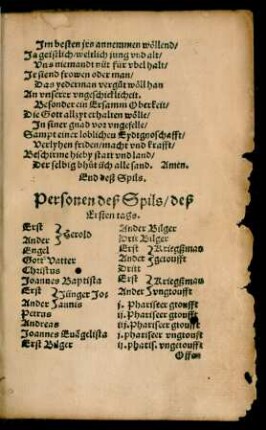 Im besten jrs annemmen wöllend/
Ja geistlich/weltlich jung vnd alt/
Vns niemandt nüt für vbel halt/
Jr siend frowen oder man/
Das yederman vergüt wöll han
An vnserer vngeschicklicheit.
Besonder ein Ersamm Oberkeit/
Die Gott allzyt erhalten wölle/
In siner gnad vor vngefelle/
Sampt einer loblichen Eydtgnoschafft/
Verlyhen friden/macht vnd krafft/
Beschirme hieby statt vnd land/
Der selbig bhüt üch alle sand. Amen.
End deß Spils.
Personen deß Spils/deß
Ersten tags.
Erst
Ander } Herold
Engel
Gott Vatter
Christus
Joannes Baptista
Erst } Jünger Jo-
Ander } annis
Petrus
Andreas
Joannes Euãgelista
Erst Bilger
Ander Bilger
Drit Bilger
Erst } Kriegßman
Ander } getoufft
Dritt
Erst } Kriegßman
Ander } vngtoufft
j. Phariseer gtoufft
ij. Phariseer gtoufft
iij. Phariseer gtoufft
j. Phariseer vngtoufft
ij. pharis. vngetoufft
Offen